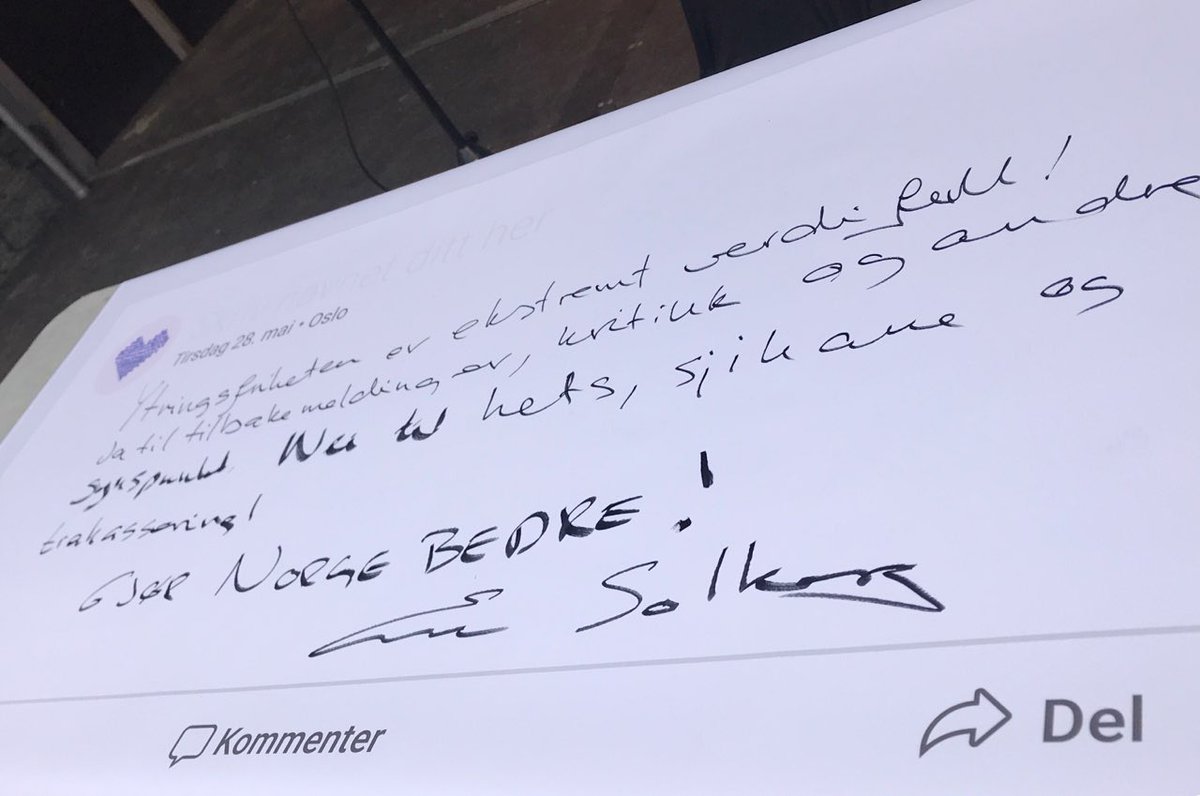 navnet ditt her
Tirsdag 28. mai • Oslo
Ytringsfriheten er ekstremt verdifull!
Ja til tilbakemeldinger, kritikk og andre
synspunkt. Nei til hets, sjikane og
trakassering!
GJØR NORGE BEDRE!
Erna Solberg
Kommenter
Del